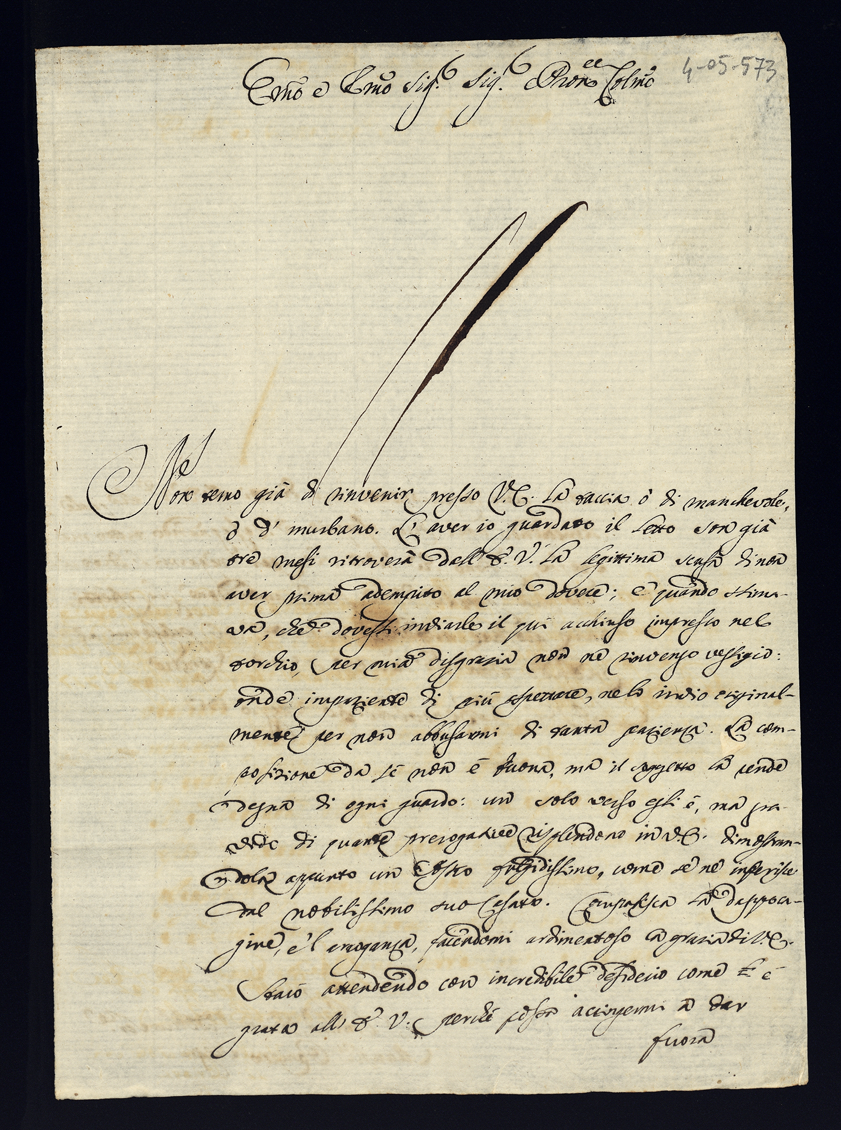 Em̃o e Rm̃o Sig.r Sig.r e Pron̄e Colm̃o
4-05-573
Non temo già di rinvenir presso V.E. la taccia ò di manchevole,
ò d'inurbano. L'aver io guardato il letto son già
tre mesi ritroverà dall' E. V. la legittima scusa di non
aver prima adempito al mio dovere; e quando stima-
va, che dovessi inviarle il qui acchiuso impresso nel
torchio, per mia disgrazia non ne rinvengo vestigio:
onde impaziente di più aspettare, ne lo invio original-
mente per non abbusarmi di tanta pazienza. La com-
posizione da sè non è buona, ma il soggetto la rende
degna di ogni guardo: un solo verso egli è, ma pra-
di quante prerogative risplendono in V.E. dimostran-
dola appunto un Ostro fulgidissimo, come se ne inferisce
dal nobilissimo suo Casato. Compatisca la dappoca-
gine, e l'arroganza, facendomi ardimentoso la grazia di V.E.
Starò attendendo con incredibile desiderio come è
grata all' E. V. perchè possa accignermi a dar
fuora